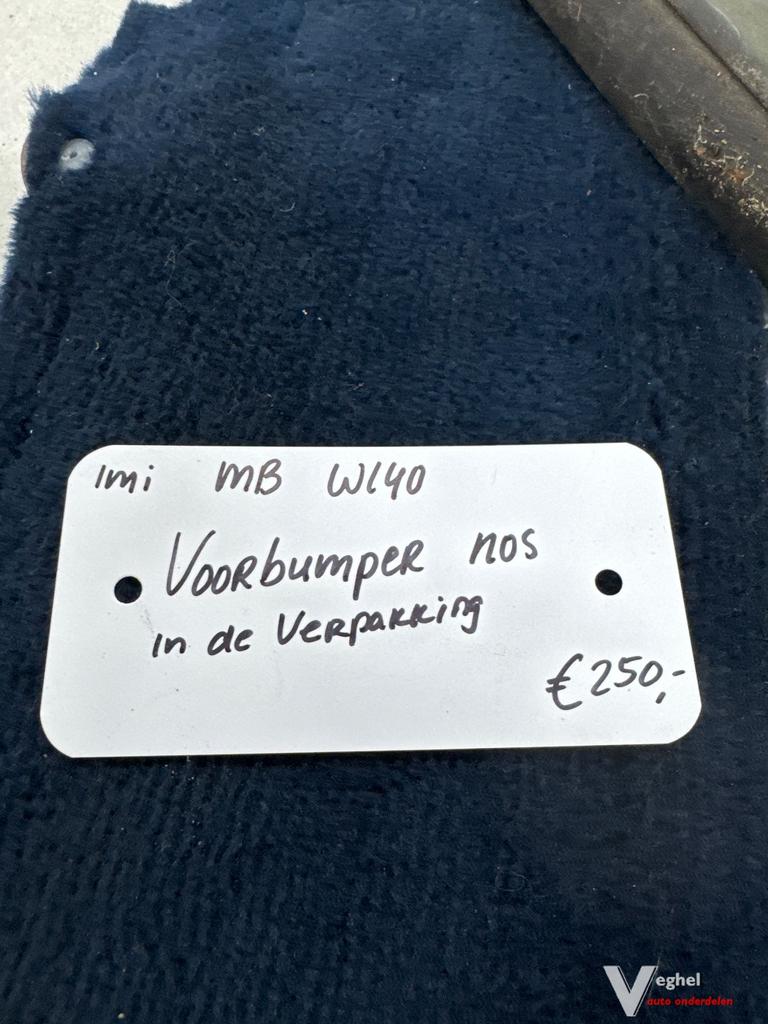 imi MB W140
Voorbumper nos
in de Verpakking
€250,-
Veghel
auto onderdelen